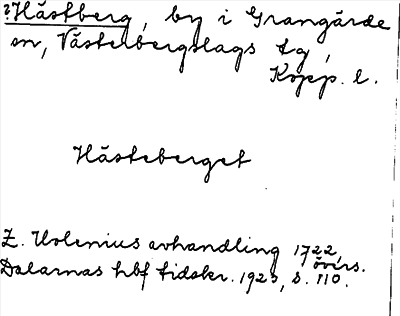 ?Hästberg, by i Grangärde
sn, Västerbergslags tg,
Kopp. l.
Hästeberget
Z. Uolenius avhandling 1722,
övers.
Dalarnas hbf tidskr. 1923, s. 110.